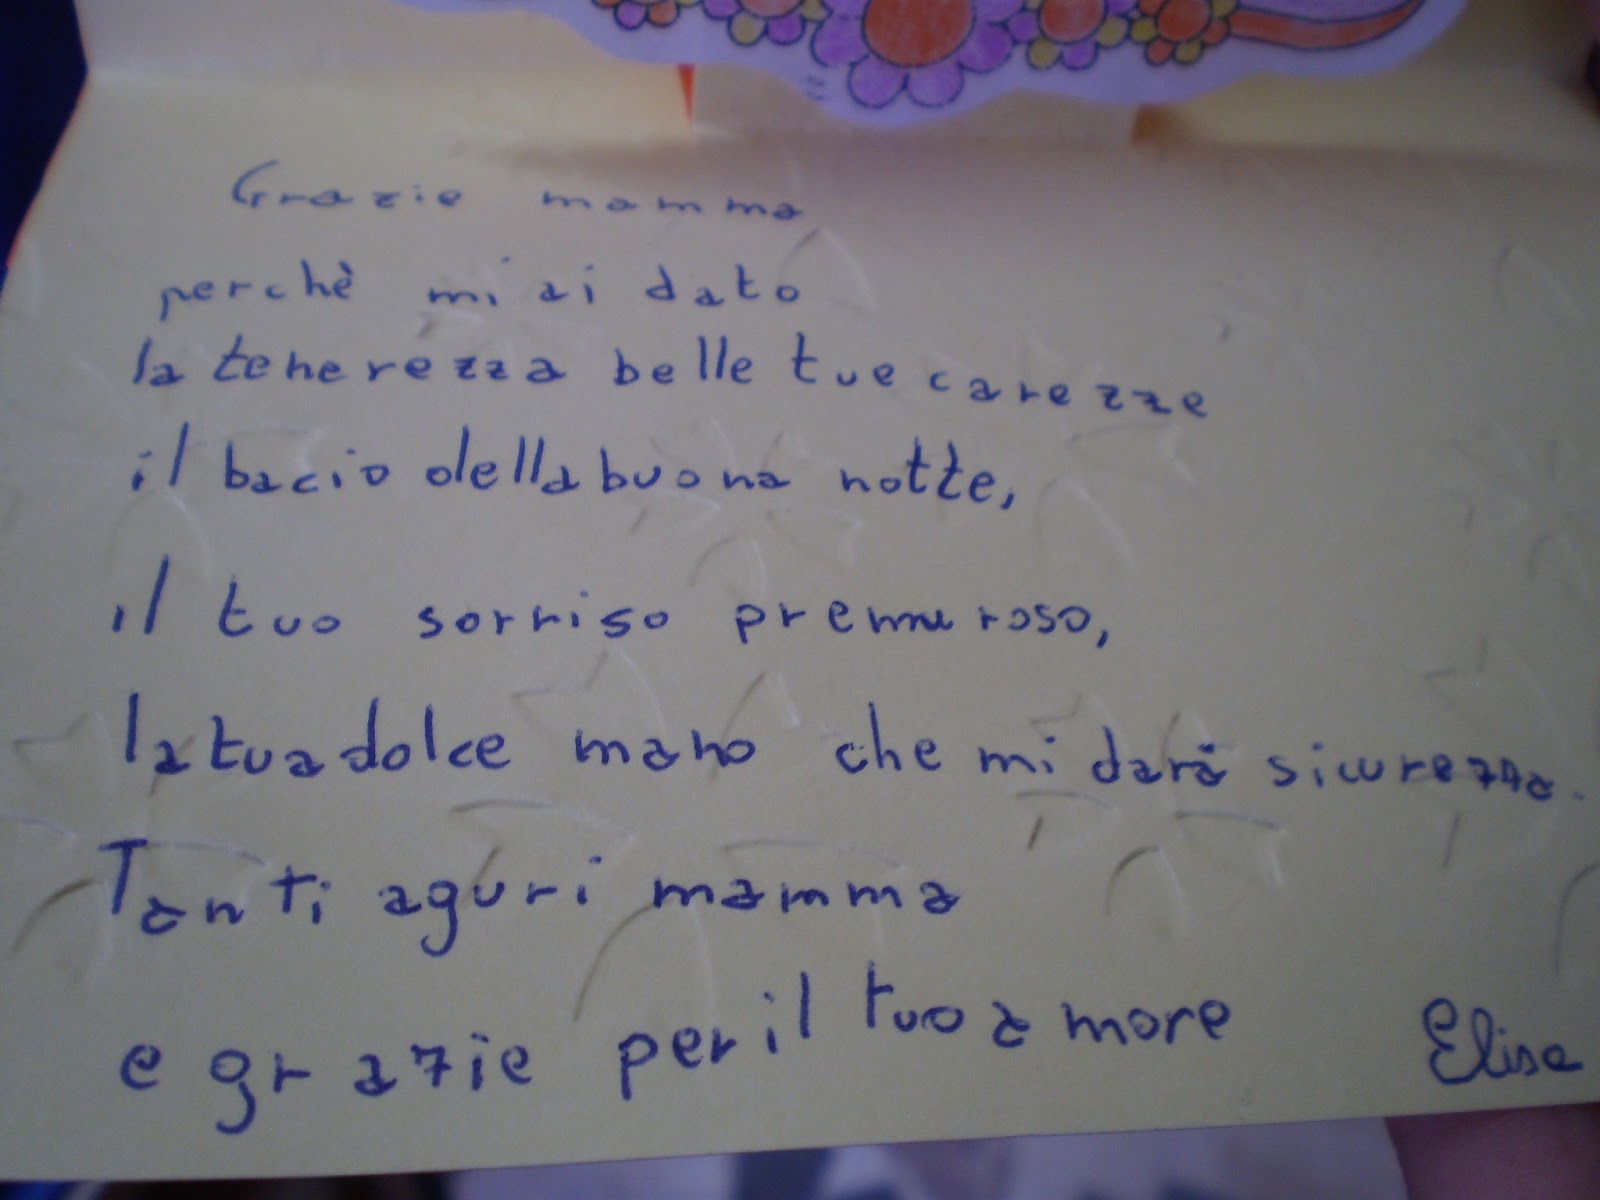 Grazie mamma
perchè mi ai dato
la tenerezza belle tue carezze
il bacio della buona notte,
il tuo sorriso premuroso,
la tua dolce mano che mi darà sicurezza.
Tanti aguri mamma
e grazie per il tuo amore Elisa